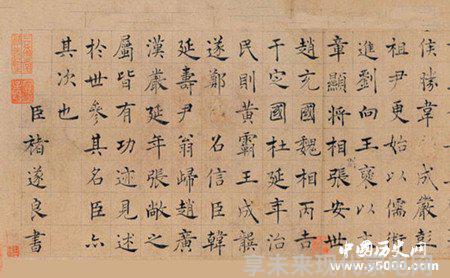 侯勝韋 成嚴彭
祖尹更始以儒術
進劉向王襃以文
章顯將相張安世
趙充國魏相丙吉
于定國杜延年治
民則黃霸王成龔
遂鄭 召信臣韓
延壽尹翁歸趙廣
漢嚴延年張敞之
屬皆有功迹見述
於世參其名臣亦
其次也
臣褚遂良書
中国历史网
www.y5000.com